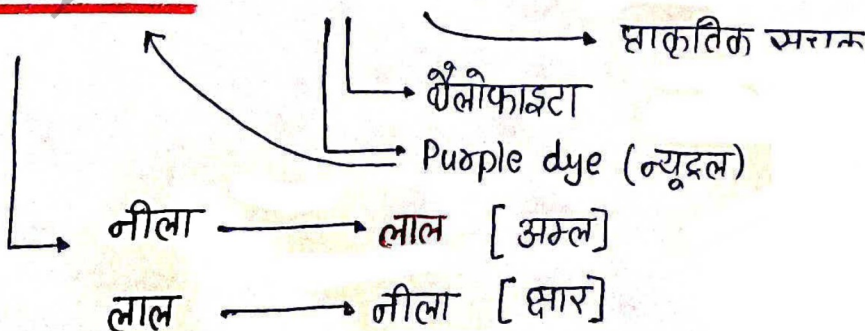 प्राकृतिक
थैलोफाइटा
Purple dye (न्यूट्रल)
नीला → लाल [अम्ल]
लाल → नीला [क्षार]